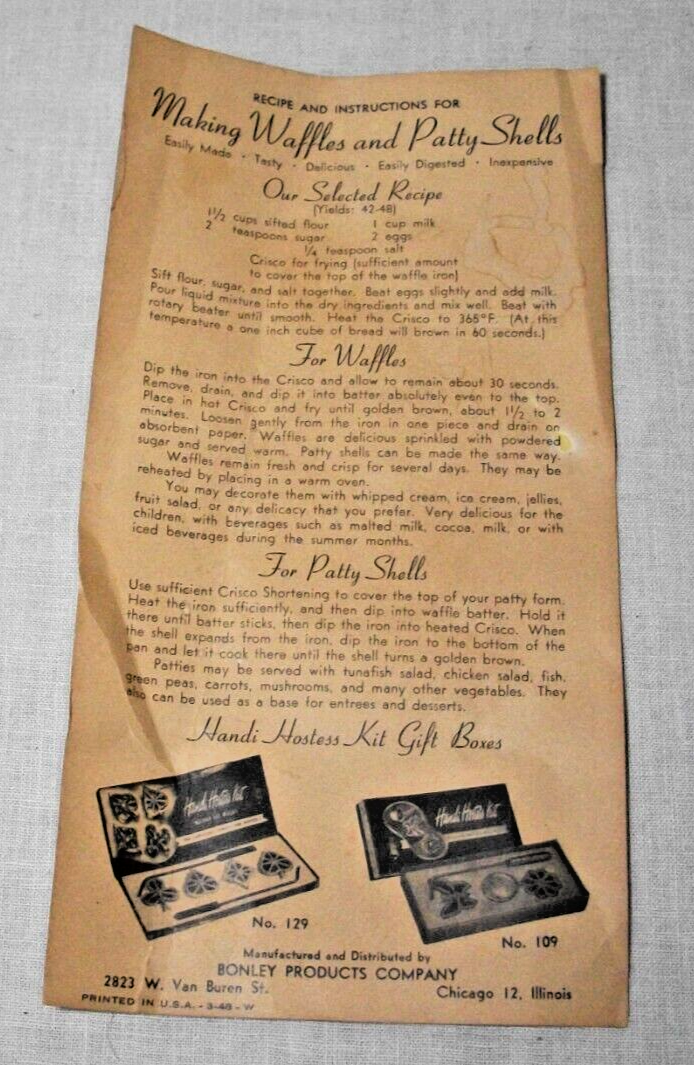 RECIPE AND INSTRUCTIONS FOR
Making Waffles and Patty Shells
Easily Made · Tasty · Delicious · Easily Digested · Inexpensive
Our Selected Recipe
(Yields: 42-48)
1½ cups sifted flour 1 cup milk
2 teaspoons sugar 2 eggs
¼ teaspoon salt
Crisco for frying (sufficient amount
to cover the top of the waffle iron)
Sift flour, sugar, and salt together. Beat eggs slightly and add milk.
Pour liquid mixture into the dry ingredients and mix well. Beat with
rotary beater until smooth. Heat the Crisco to 365°F. (At this
temperature a one inch cube of bread will brown in 60 seconds.)
For Waffles
Dip the iron into the Crisco and allow to remain about 30 seconds.
Remove, drain, and dip it into batter absolutely even to the top.
Place in hot Crisco and fry until golden brown, about 1½ to 2
minutes. Loosen gently from the iron in one piece and drain on
absorbent paper. Waffles are delicious sprinkled with powdered
sugar and served warm. Patty shells can be made the same way.
Waffles remain fresh and crisp for several days. They may be
reheated by placing in a warm oven.
You may decorate them with whipped cream, ice cream, jellies,
fruit salad, or any delicacy that you prefer. Very delicious for the
children, with beverages such as malted milk, cocoa, milk, or with
iced beverages during the summer months.
For Patty Shells
Use sufficient Crisco Shortening to cover the top of your patty form.
Heat the iron sufficiently, and then dip into waffle batter. Hold it
there until batter sticks, then dip the iron into heated Crisco. When
the shell expands from the iron, dip the iron to the bottom of the
pan and let it cook there until the shell turns a golden brown.
Patties may be served with tunafish salad, chicken salad, fish,
green peas, carrots, mushrooms, and many other vegetables. They
also can be used as a base for entrees and desserts.
Handi Hostess Kit Gift Boxes
Handi Hostess Kit
Handi Hostess Kit
No. 129
No. 109
Manufactured and Distributed by
BONLEY PRODUCTS COMPANY
2823 W. Van Buren St. Chicago 12, Illinois
PRINTED IN U.S.A. - 3-48 - W